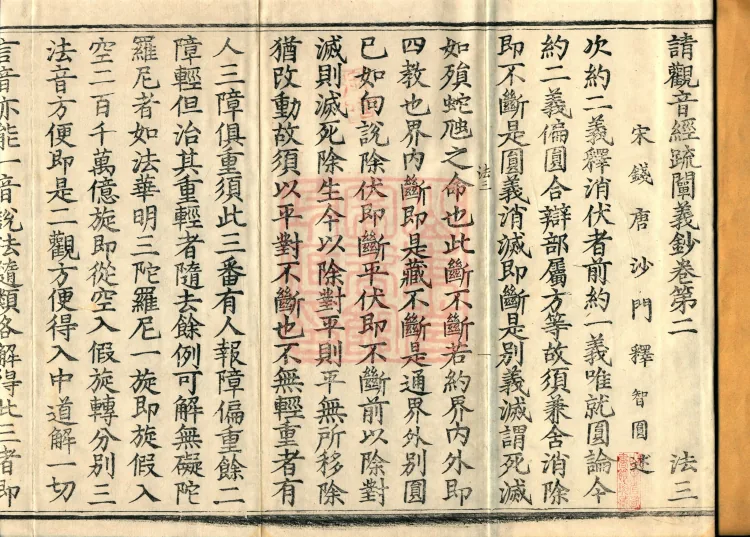 請觀音經疏闡義鈔卷第二 法三
宋錢唐沙門釋智圓述
次約二義釋消伏者前約一義唯就圓論今
約二義偏圓合辯部屬方等故須兼含消除
即不斷是圓義消滅即斷是別義滅謂死滅
如殞蛇虺之命也此斷不斷若約界內外即
法三
四教也界內斷即是藏不斷是通界外別圓
已如向說除伏即斷平伏即不斷前以除對
滅則滅死除生今以除對平則平無所移除
猶改動故須以平對不斷也不無輕重者有
人三障俱重須此三番有人報障偏重餘二
障輕但治其重輕者隨去餘例可解無礙陀
羅尼者如法華明三陀羅尼一旋即旋假入
空二百千萬億旋即從空入假旋轉分別三
法音方便即是二觀方便得入中道解一切
言音亦能一音說法隨類各解得此三者即